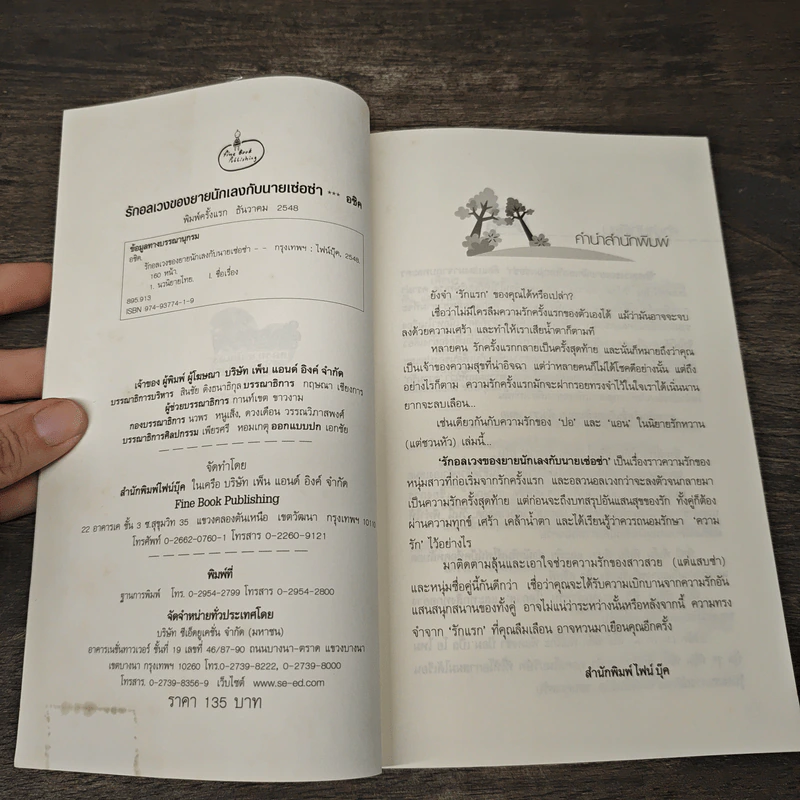 Fine Book
Publishing
รักอลเวงของยายนักเลงกับนายเซ่อซ่า *** อชิค
พิมพ์ครั้งแรก ธันวาคม 2548
ข้อมูลทางบรรณานุกรม
อชิค.
รักอลเวงของยายนักเลงกับนายเซ่อซ่า - - กรุงเทพฯ : ไฟน์บุ๊ค, 2548.
160 หน้า.
1. นวนิยายไทย. I. ชื่อเรื่อง
895.913
ISBN 974-93774-1-9
เจ้าของ ผู้พิมพ์ ผู้โฆษณา บริษัท เพ็น แอนด์ อิงค์ จำกัด
บรรณาธิการบริหาร สินชัย ติงธนาธิกุล บรรณาธิการ กฤษณา เชียงการ
ผู้ช่วยบรรณาธิการ กานท์เขต ชาวงาม
กองบรรณาธิการ นวพร หนูเส้ง, ดวงเดือน วรรณวิภาสพงศ์
บรรณาธิการศิลปกรรม เพียรศรี หอมเกตุ ออกแบบปก เอกชัย
จัดทำโดย
สำนักพิมพ์ไฟน์บุ๊ค ในเครือ บริษัท เพ็น แอนด์ อิงค์ จำกัด
Fine Book Publishing
22 อาคารเค ชั้น 3 ซ.สุขุมวิท 35 แขวงคลองตันเหนือ เขตวัฒนา กรุงเทพฯ 10110
โทรศัพท์ 0-2662-0760-1 โทรสาร 0-2260-9121
พิมพ์ที่
ฐานการพิมพ์ โทร. 0-2954-2799 โทรสาร 0-2954-2800
จัดจำหน่ายทั่วประเทศโดย
บริษัท ซีเอ็ดยูเคชั่น จำกัด (มหาชน)
อาคารเนชั่นทาวเวอร์ ชั้นที่ 19 เลขที่ 46/87-90 ถนนบางนา-ตราด แขวงบางนา
เขตบางนา กรุงเทพฯ 10260 โทร.0-2739-8222, 0-2739-8000
โทรสาร. 0-2739-8356-9 เว็บไซต์ www.se-ed.com
ราคา 135 บาท
คำนำสำนักพิมพ์
ยังจำ ‘รักแรก’ ของคุณได้หรือเปล่า?
เชื่อว่าไม่มีใครลืมความรักครั้งแรกของตัวเองได้ แม้ว่ามันอาจจะจบ
ลงด้วยความเศร้า และทำให้เราเสียน้ำตาก็ตามที
หลายคน รักครั้งแรกกลายเป็นครั้งสุดท้าย และนั่นก็หมายถึงว่าคุณ
เป็นเจ้าของความสุขที่น่าอิจฉา แต่ว่าหลายคนก็ไม่ได้โชคดีอย่างนั้น แต่ถึง
อย่างไรก็ตาม ความรักครั้งแรกมักจะฝากรอยทรงจำไว้ในใจเราได้เนิ่นนาน
ยากจะลบเลือน...
เช่นเดียวกันกับความรักของ ‘ปอ’ และ ‘แอน’ ในนิยายรักหวาน
(แต่ชวนหัว) เล่มนี้...
‘รักอลเวงของยายนักเลงกับนายเซ่อซ่า’ เป็นเรื่องราวความรักของ
หนุ่มสาวที่ก่อเริ่มจากรักครั้งแรก และอลวนอลเวงกว่าจะลงตัวจนกลายมา
เป็นความรักครั้งสุดท้าย แต่ก่อนจะถึงบทสรุปอันแสนสุขของรัก ทั้งคู่ก็ต้อง
ผ่านความทุกข์ เศร้า เคล้าน้ำตา และได้เรียนรู้ว่าควรถนอมรักษา ‘ความ
รัก’ ไว้อย่างไร
มาติดตามลุ้นและเอาใจช่วยความรักของสาวสวย (แต่แสบซ่า)
และหนุ่มซื่อคู่นี้กันดีกว่า เชื่อว่าคุณจะได้รับความเบิกบานจากความรักอัน
แสนสนุกสนานของทั้งคู่ อาจไม่แน่ว่าระหว่างนั้นหรือหลังจากนี้ ความทรง
จำจาก ‘รักแรก’ ที่คุณลืมเลือน อาจหวนมาเยือนคุณอีกครั้ง
สำนักพิมพ์ ไฟน์ บุ๊ค